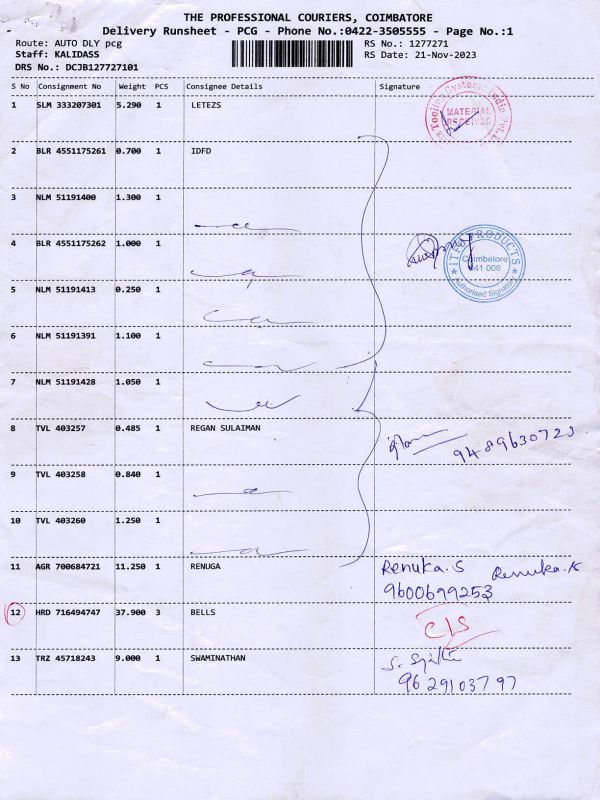 THE PROFESSIONAL COURIERS, COIMBATORE
Delivery Runsheet - PCG - Phone No.:0422-3505555 - Page No.:1
Route: AUTO DLY pcg RS No.: 1277271
Staff: KALIDASS RS Date: 21-Nov-2023
DRS No.: DCJB127727101
S No Consignment No Weight PCS Consignee Details Signature
1 SLM 333207301 5.290 1 LETEZS
MATERIAL
RECEIVED
2 BLR 4551175261 0.700 1 IDFD
3 NLM 51191400 1.300 1
4 BLR 4551175262 1.000 1
PRODUCTS
Coimbatore
641 006
Authorised Signatory
5 NLM 51191413 0.250 1
6 NLM 51191391 1.100 1
7 NLM 51191428 1.050 1
8 TVL 403257 0.485 1 REGAN SULAIMAN
9489630723
9 TVL 403258 0.840 1
10 TVL 403260 1.250 1
11 AGR 700684721 11.250 1 RENUGA Renuka.S Renuka.K
9600699253
12 HRD 716494747 37.900 3 BELLS C/S
13 TRZ 45718243 9.000 1 SWAMINATHAN
9629103797